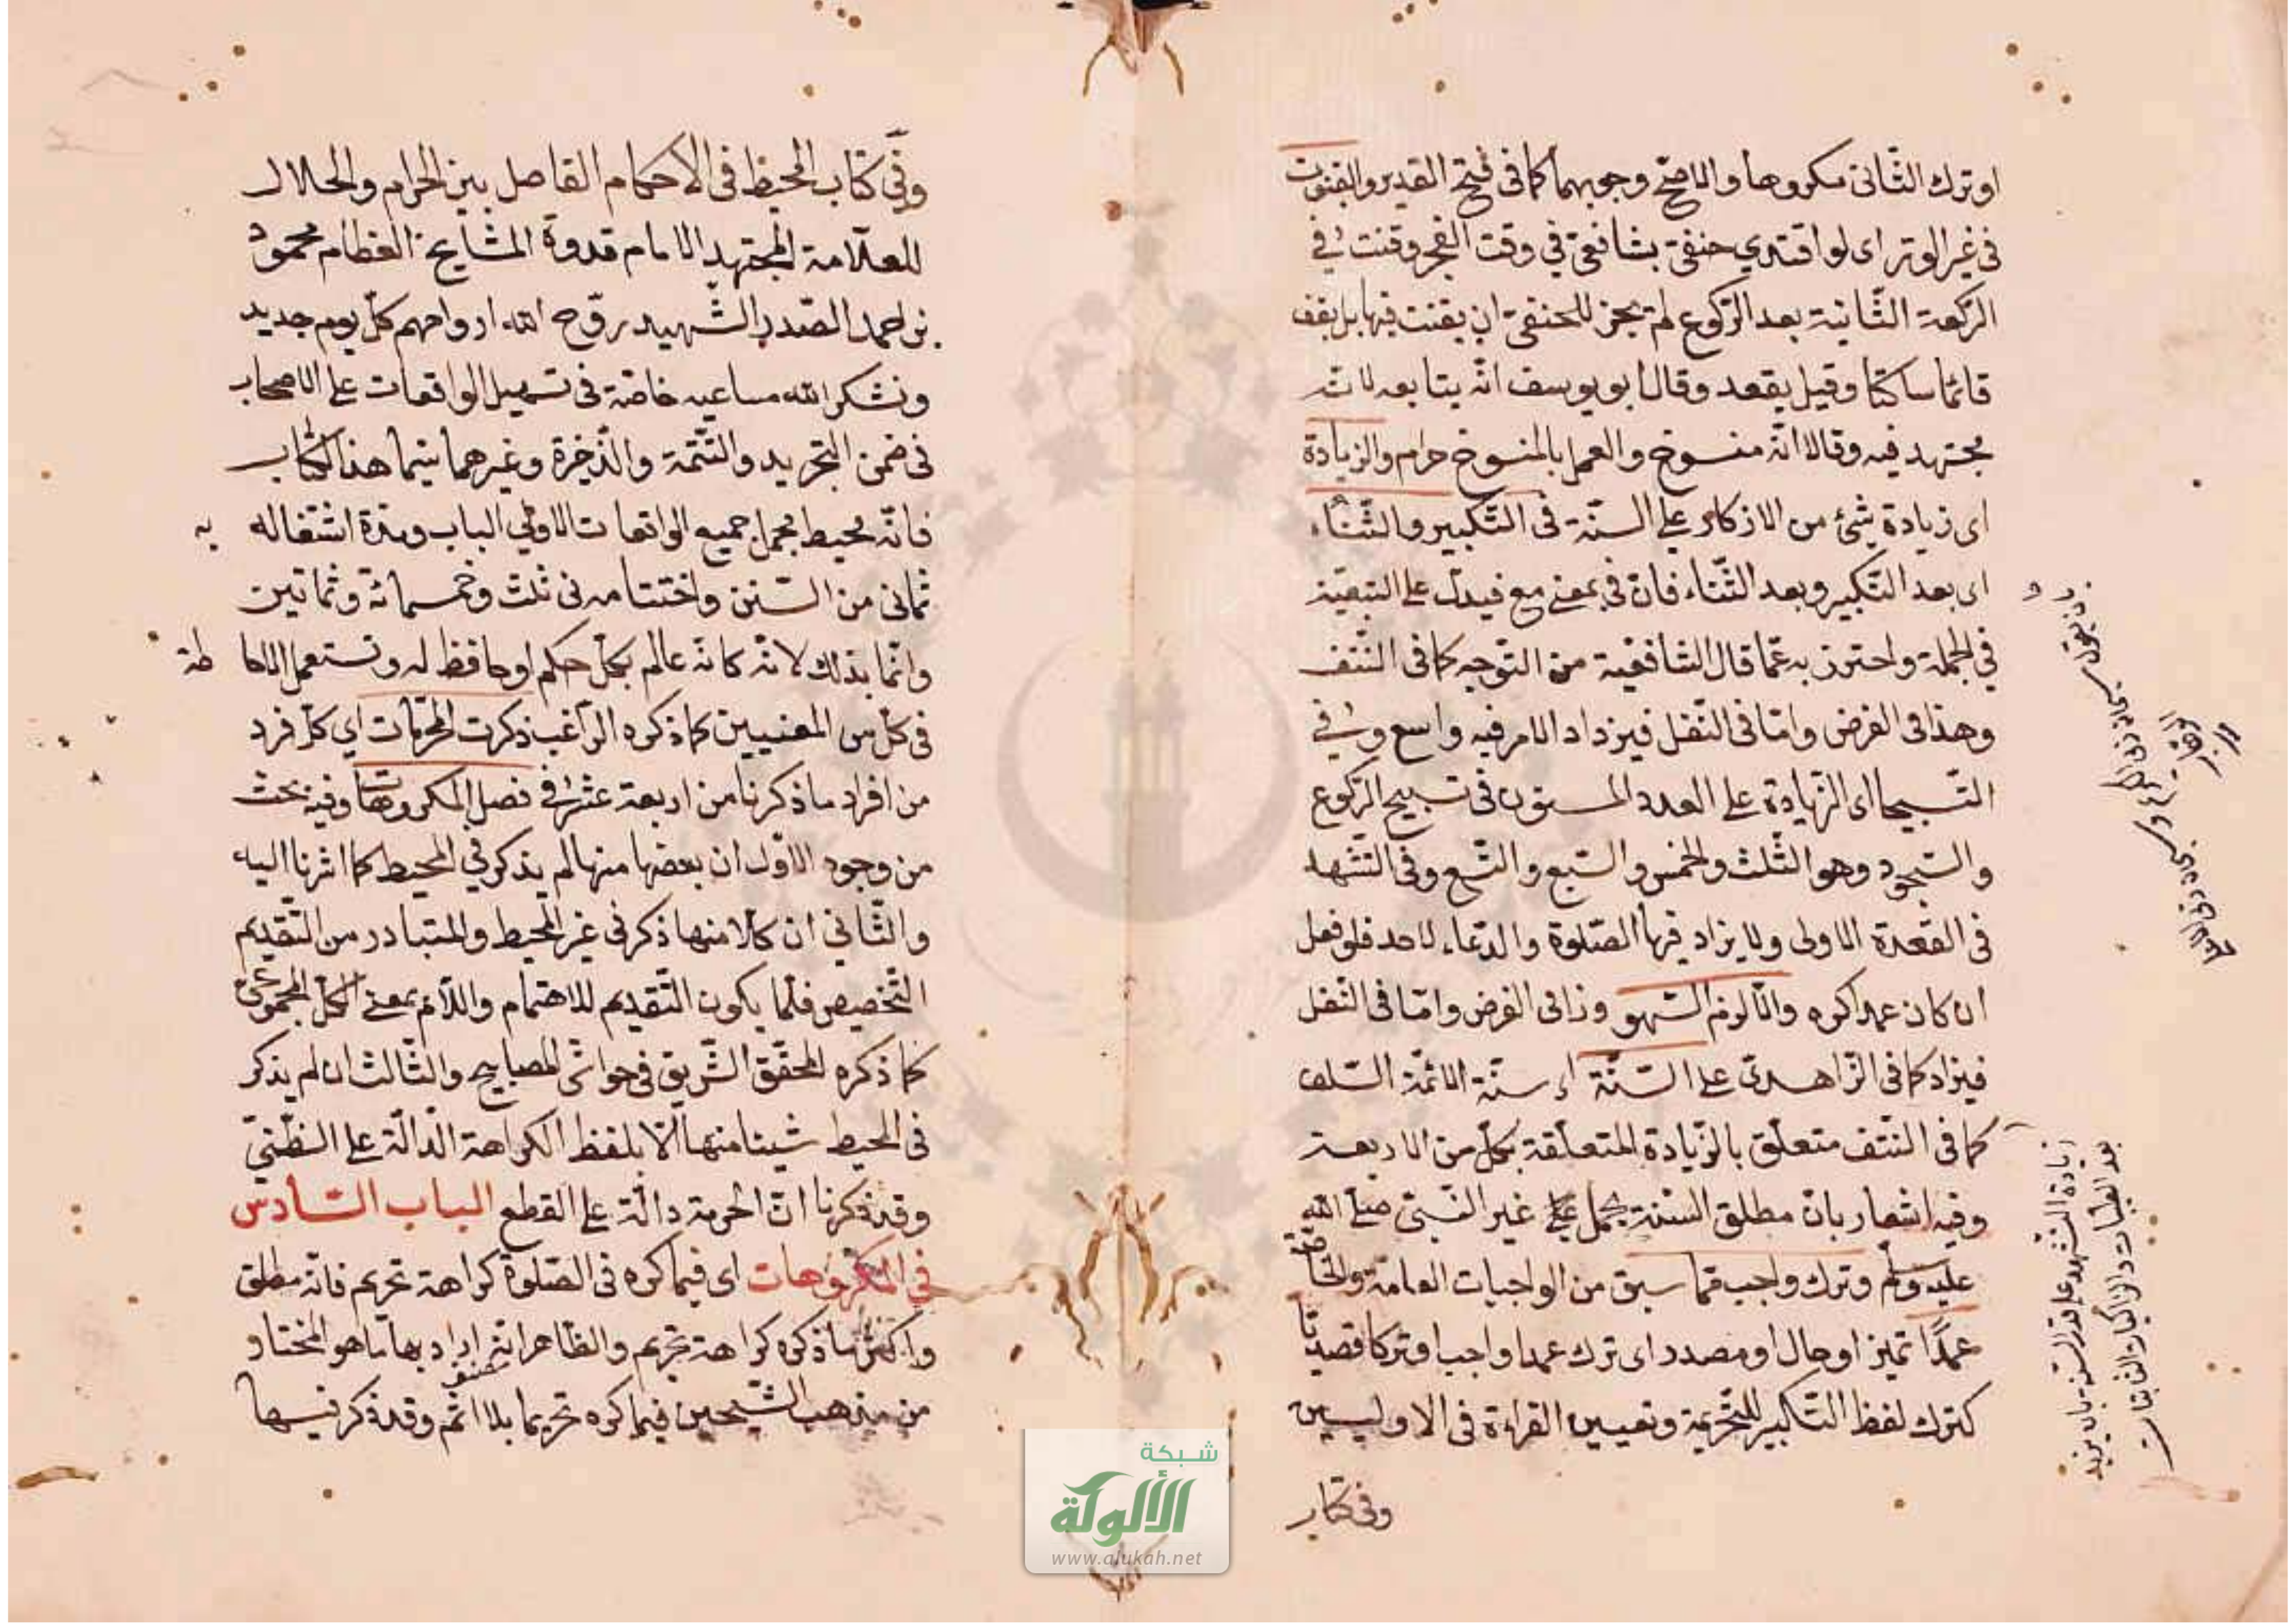 او ترك الثّانى مكروها والاصحّ وجوبهما كما فى فتح القدير والقنوت
فى غير الوتر اى لو اقتدي حنفىّ بشافعىّ في وقت الفجر وقنت في
الرّكعة الثّانية بعد الرّكوع لم يجز للحنفىّ ان يقنت فيها بل يقف
قائما ساكتا وقيل يقعد وقال ابو يوسف انّه يتابعه لانّه
مجتهد فيه وقالا انّه منسوخ والعمل بالمنسوخ حرام والزيادة
اى زيادة شئ من الاذكار على السنّة فى التّكبير والثّناء
اى بعد التّكبير وبعد الثّناء فانّ في بمعنى مع فيدلّ على التبعيّة
في الجملة واحترز به عمّا قال الشافعيّة من التّوجه كما فى النّتف
وهذا فى الفرض وامّا فى النّفل فيزداد الامر فيه واسع و في
التّسبيحا اى الزّيادة على العدد المسنون فى تسبيح الرّكوع
والسّجود وهو الثّلث والخمس والسّبع والتّسع وفى التّشهد
فى القعدة الاولى ولا يزاد فيها الصّلوة والدّعاء لاحد فلو فعل
ان كان عمدا كره والّا لزم السّهو وذا فى الفرض وامّا فى النّفل
فيزاد كما فى الزّاهدىّ على السّنّة اي سنّة الائمّة السّلف
كما فى النّتف متعلّق بالزّيادة المتعلّقة بكلّ من الاربعة
وفيه اشعار بانّ مطلق السّنّة يحمل على غير النّبىّ صلّى الله
عليه وسلّم وترك واجب ممّا سبق من الواجبات العامّة والخاصّة
عمدًا تميز او حال او مصدر اى ترك عمدا واجبا او تركا قصديّا
كترك لفظ التّكبير للتّحريمة وتعيين القراءة فى الاوليين
وفى كتاب
بان يقول
زيادة التشهد على قدر السنة بان يزيد
بعد التحيات
وفى كتاب المحيط فى الاحكام الفاصل بين الحرام والحلال
للعلّامة المجتهد الامام قدوة المشايخ العظام محمود
بن احمد الصّدر الشّهيد روّح الله ارواحهم كلّ يوم جديد
ونشكر الله مساعيه خاصّة فى تسهيل الواقعات على الاصحاب
فى ضمن التجريد والتّتمّة والذّخيرة وغيرهما سيّما هذا الكتاب
فانّه محيط بجمل جميع الواقعات لاولي الباب ومدة اشتغاله به
ثمانى من السّنن واختتامه فى ثلث وخمسمائة وثمانين
وانّما بذلك لانّه كانّه عالم بكلّ حكم او حافظ له وتستعمل الاحاطة
فى كلّ من المعنيين كما ذكره الرّاغب ذكرت المحرّمات اي كلّ فرد
من افراد ما ذكرنا من اربعة عشر في فصل المكروهات وفيه بحث
من وجوه الاوّل ان بعضها منها لم يذكر في المحيط كما اشرنا اليه
والثّاني ان كلا منها ذكر فى غير المحيط والمتبادر من التّقديم
التّخصيص فلمّا يكون التّقديم للاهتمام واللّام بمعنى الكلّ المجموعىّ
كما ذكره المحقّق الشّريف فى حواشى المصابيح والثّالث ان لم يذكر
فى المحيط شيئا منها الّا بلفظ الكراهة الدّالّة على الظّنّيّ
وقد ذكرنا انّ الحرمة دالّة على القطع الباب السّادس
في المكروهات اى فيما كره فى الصّلوة كراهة تحريم فانّه مطلق
واكثر ما ذكره كراهة تحريم والظّاهر انّه اراد بها ما هو المختار
من مذهب الشّيخين فيما كره تحريما بلا اثم وقد ذكر فيها
شبكة
الألوكة
www.alukah.net